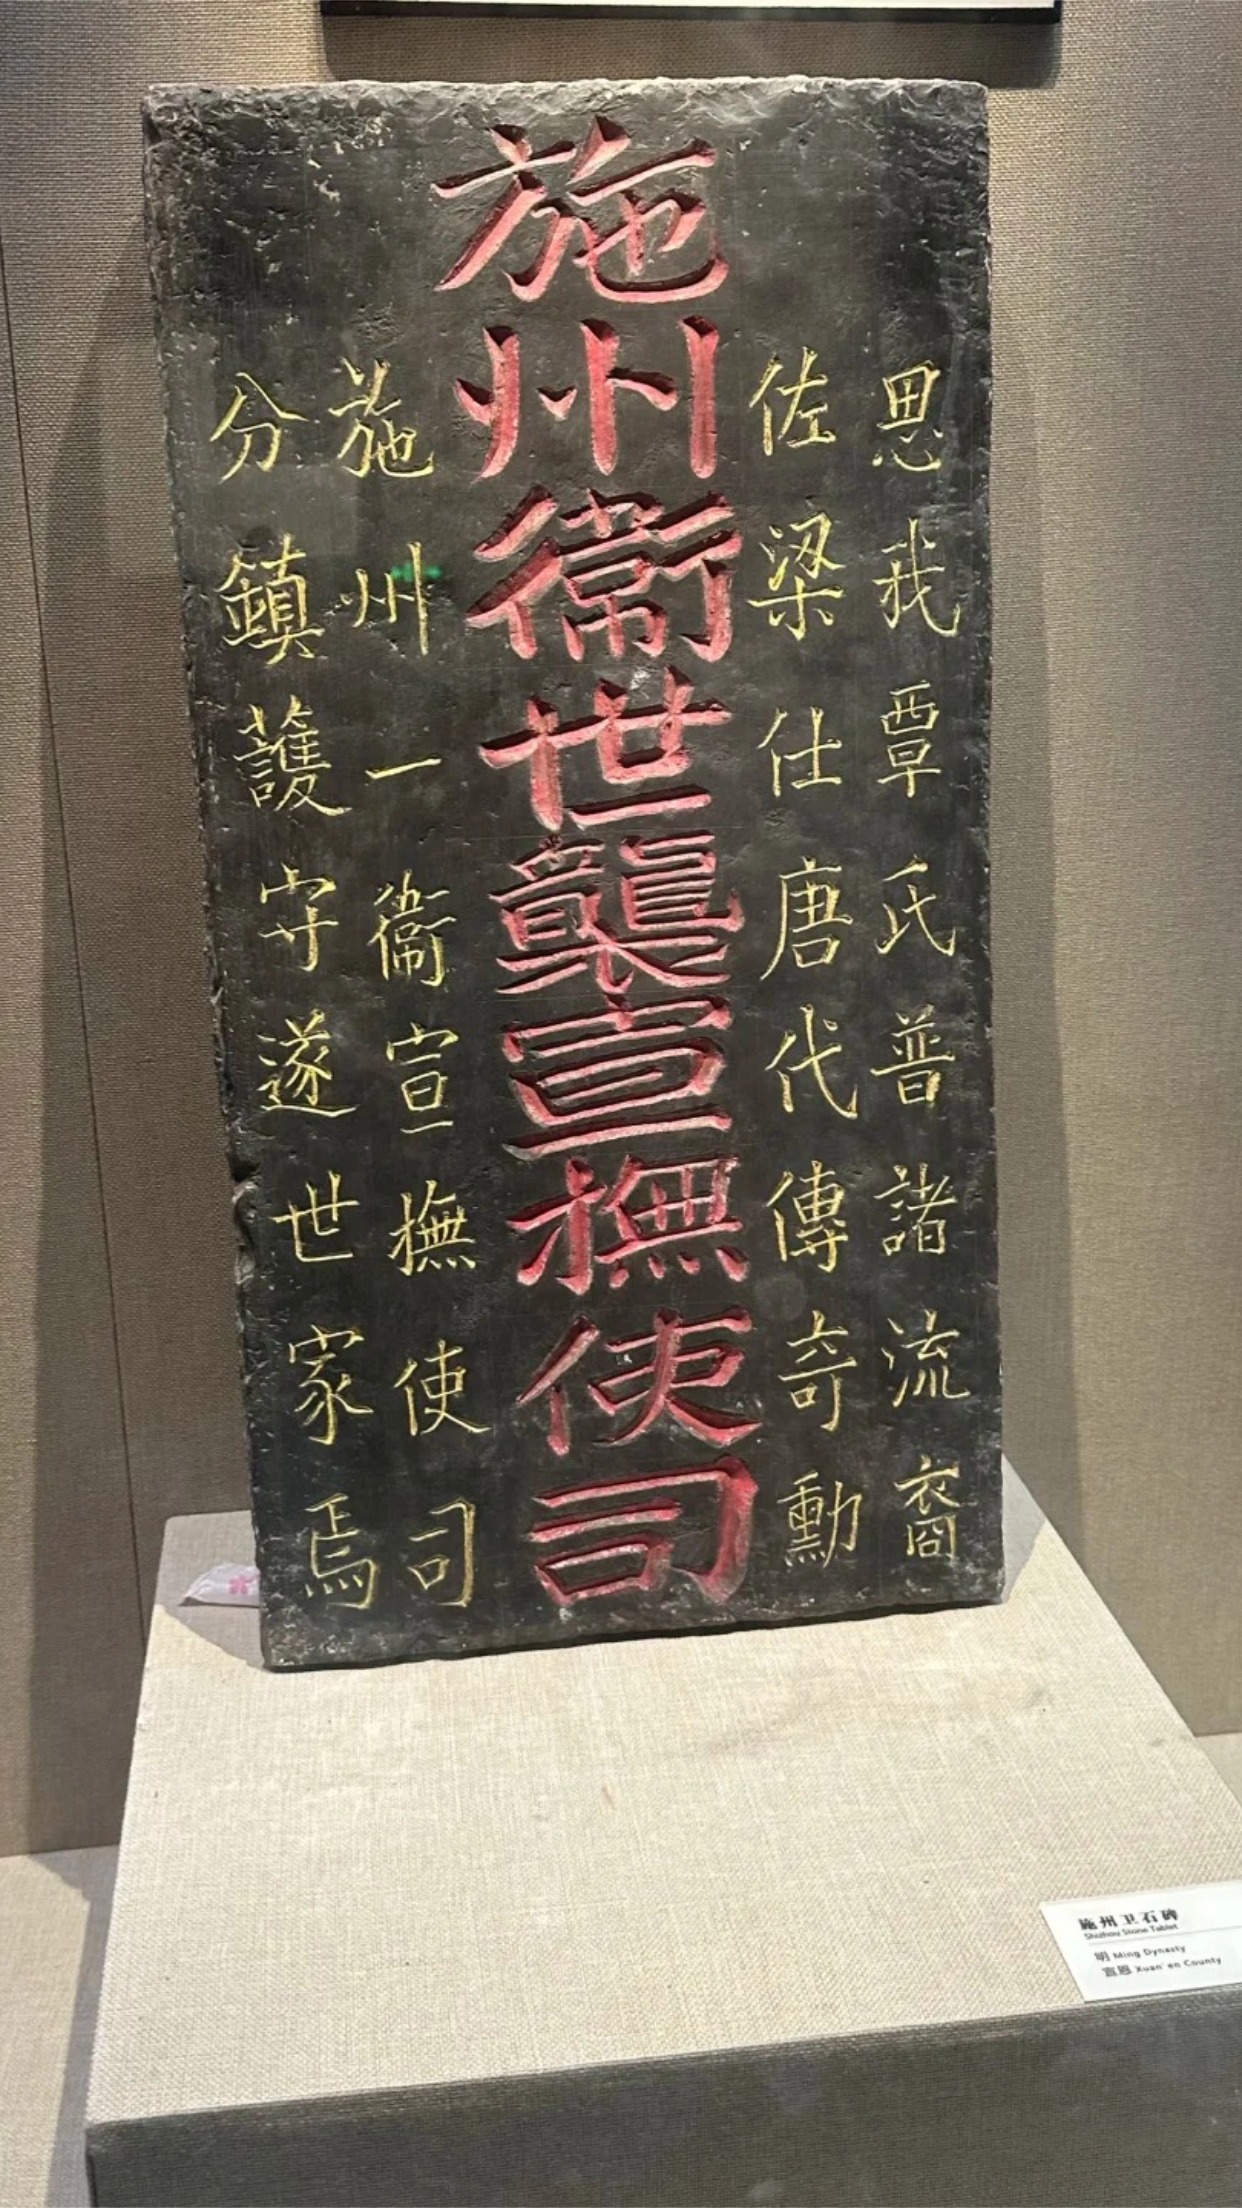 思我覃氏普諸流裔
佐梁仕唐代傳奇勳
施州衞世襲宣撫使司
施州一衞宣撫使司
分鎮護守遂世家焉
施州卫石碑
Shuzhou Stone Tablet
明 Ming Dynasty
宣恩 Xuan' en County